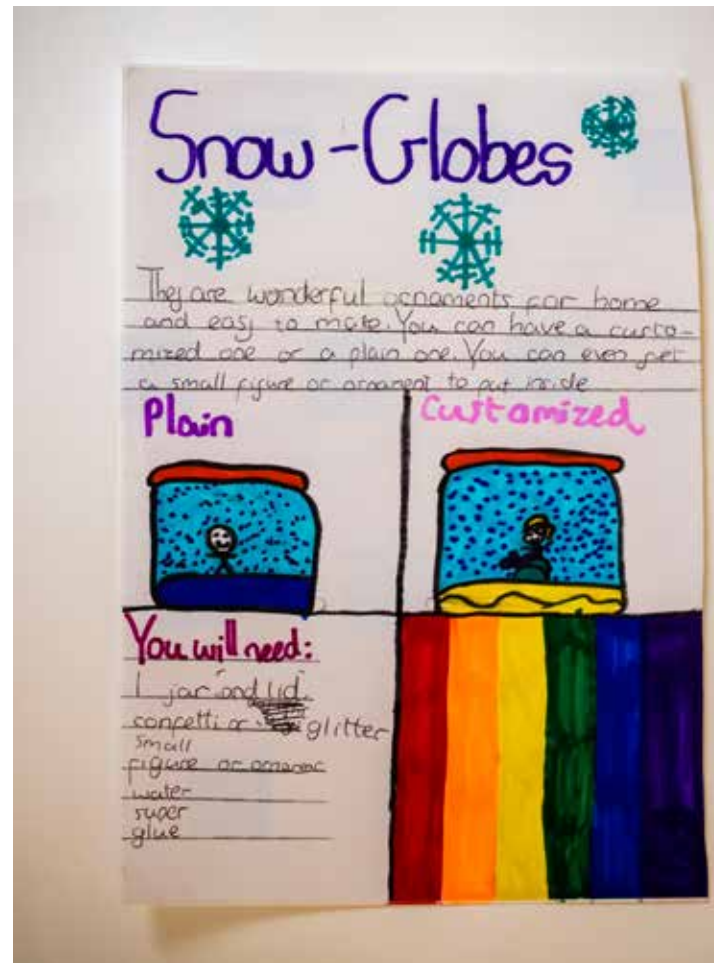 Snow-Globes
They are wonderful ornaments for home
and easy to make. You can have a custo-
mized one or a plain one. You can even get
a small figure or ornament to put inside
Plain
Customized
You will need:
1 jar and lid.
confetti or glitter
small
figure or
water
super
glue